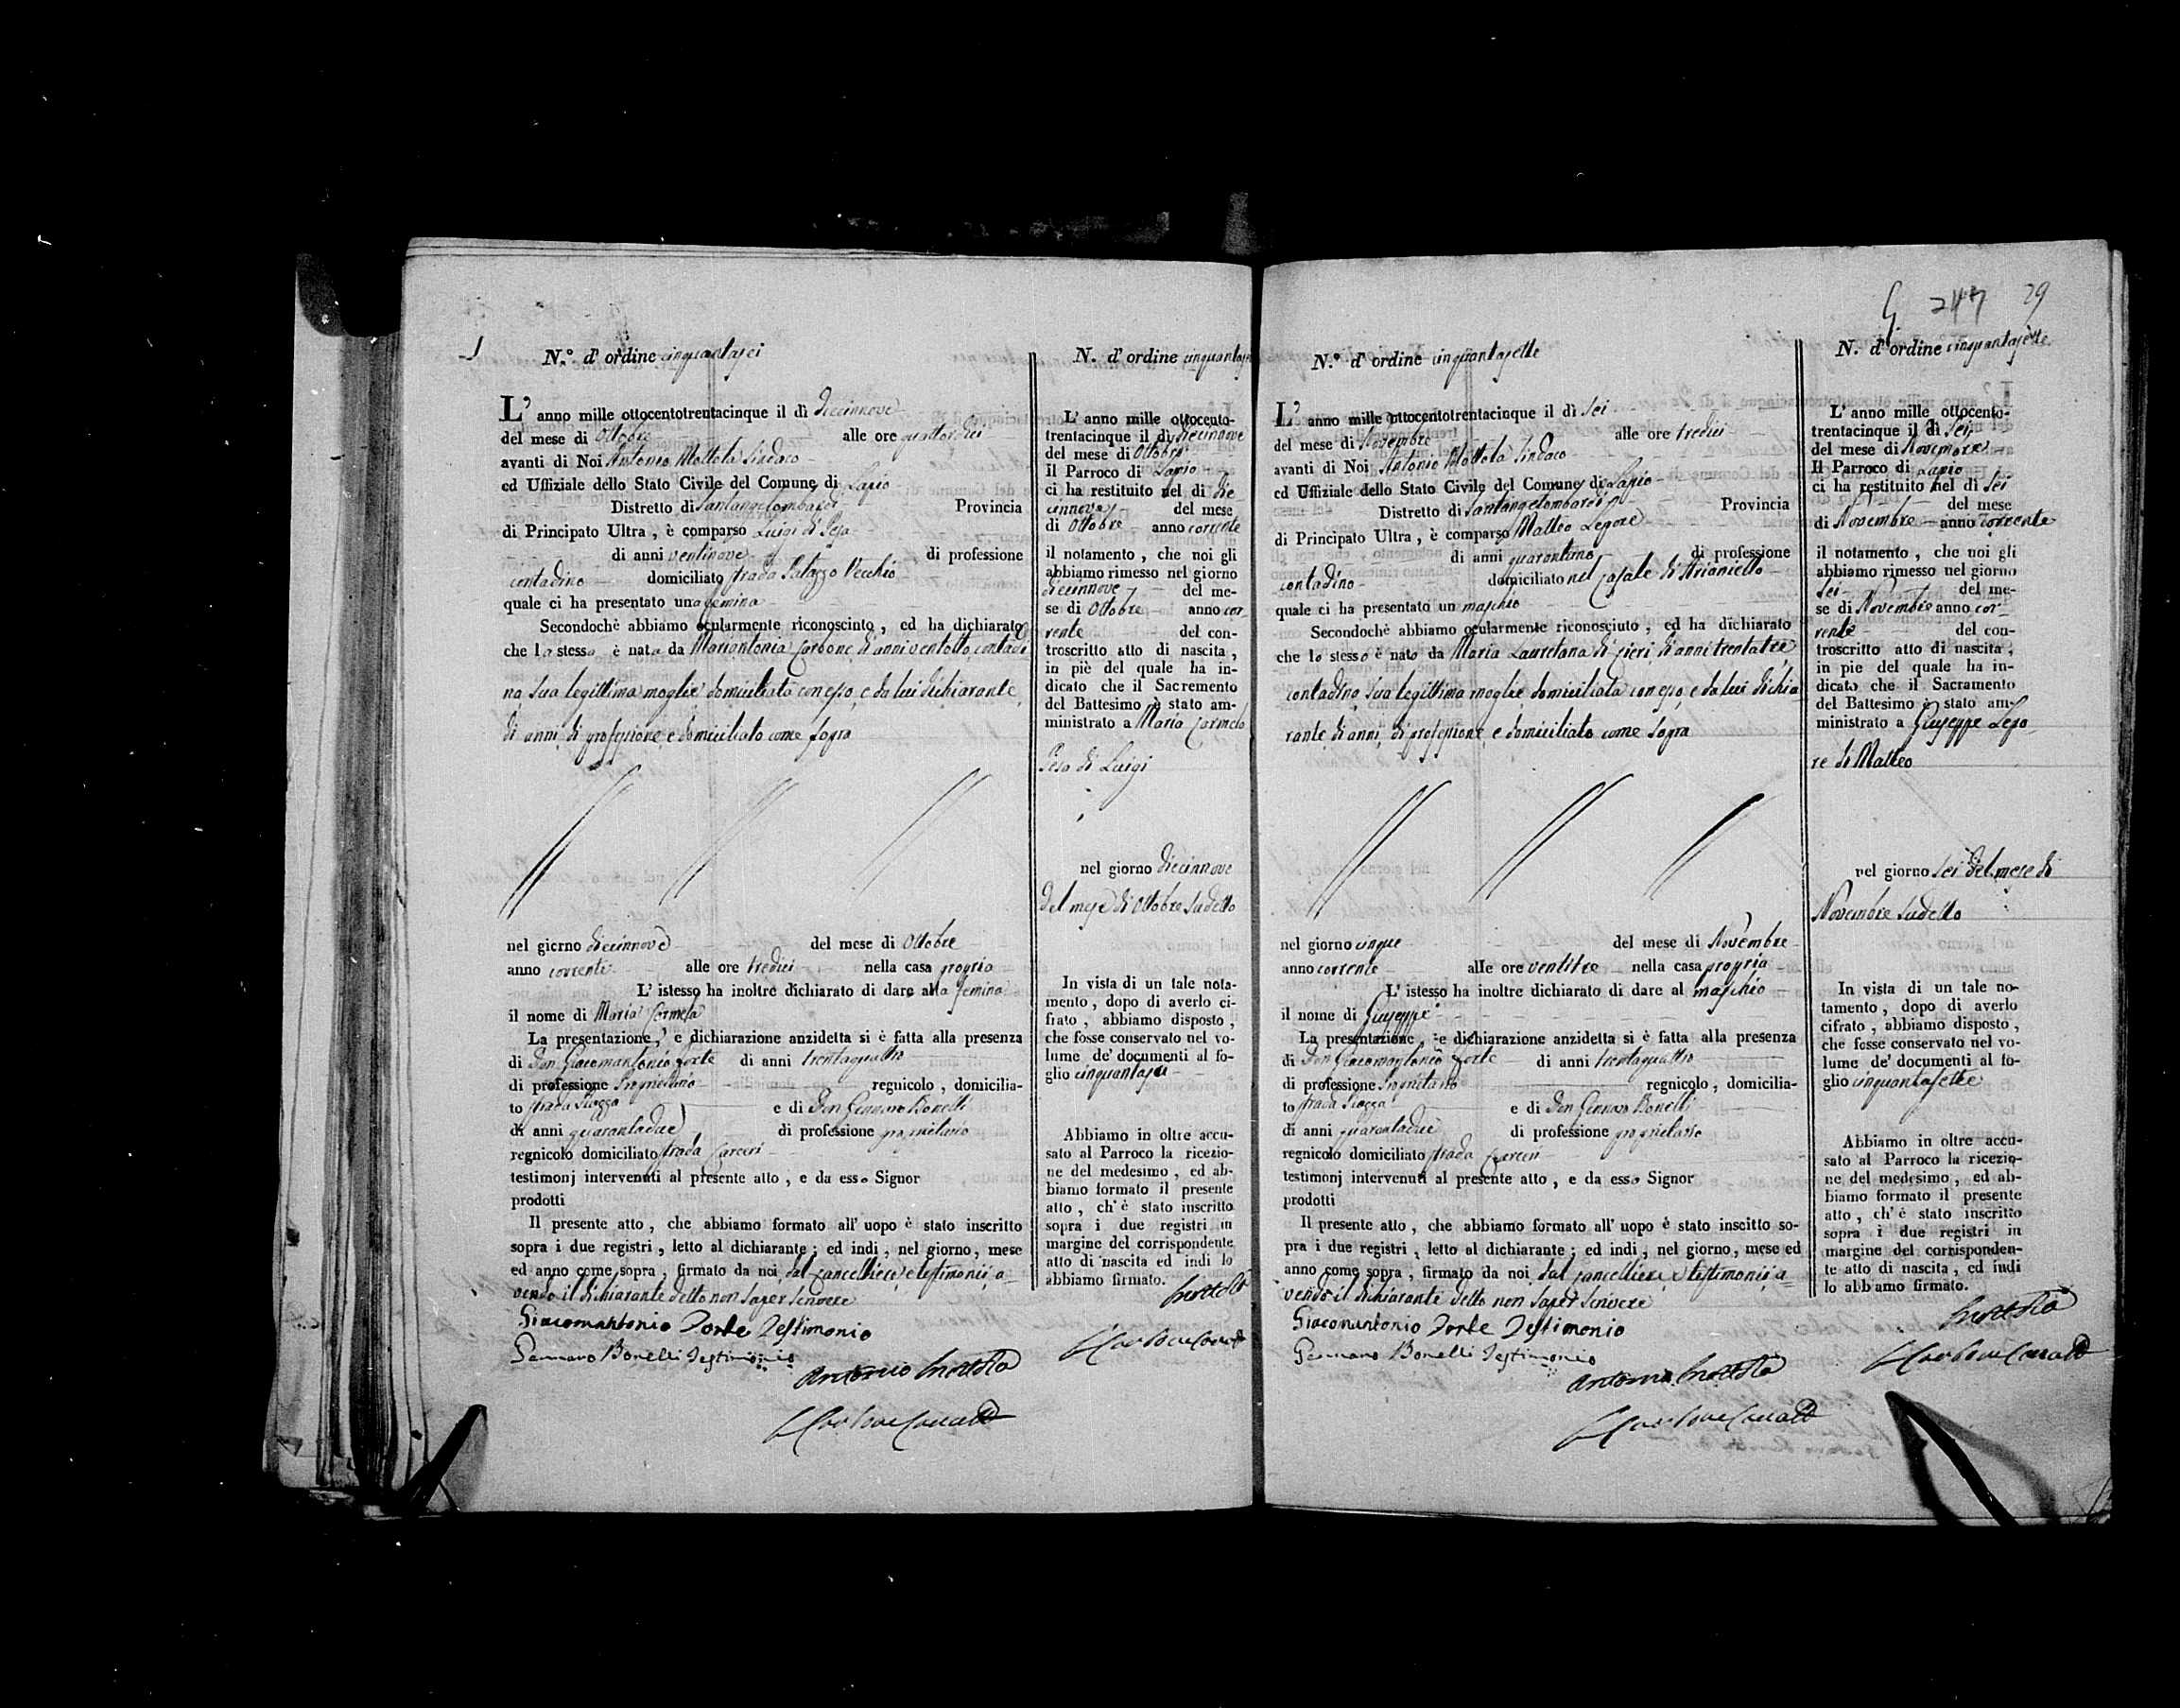 N.º d' ordine cinquantasei
L' anno mille ottocentotrentacinque il dì diecinnove
del mese di Ottobre alle ore quattordici
avanti di Noi Antonio Mottola Sindaco
ed Uffiziale dello Stato Civile del Comune di Lapio
Distretto di Santangelombardi Provincia
di Principato Ultra, è comparso Luigi di Pesa
di anni ventinove di professione
contadino domiciliato strada Palazzo Vecchio
quale ci ha presentato una femina
Secondochè abbiamo ocularmente riconosciuto, ed ha dichiarato
che la stessa è nata da Mariantonia Carbone di anni ventotto contadi
na, sua legittima moglie domiciliata con esso, e da lui dichiarante
di anni, di professione, e domiciliato come sopra
nel giorno diecinnove del mese di Ottobre
anno corrente alle ore tredici nella casa propria
L' istesso ha inoltre dichiarato di dare alla femina
il nome di Maria Carmela
La presentazione, e dichiarazione anzidetta si è fatta alla presenza
di Don Giacomantonio Forte di anni trentaquattro
di professione Proprietario regnicolo, domicilia-
to strada Piazza e di Don Gennaro Bonelli
di anni quarantadue di professione proprietario
regnicolo domiciliato strada Carceri
testimonj intervenuti al presente atto, e da esso Signor
prodotti
Il presente atto, che abbiamo formato all' uopo è stato inscritto
sopra i due registri, letto al dichiarante; ed indi, nel giorno, mese
ed anno come sopra, firmato da noi, dal cancelliere, e testimonii, a-
vendo il dichiarante detto non saper scrivere
Giacomantonio Forte Testimonio
Gennaro Bonelli Testimonio
Antonio Mottola
N. d' ordine cinquantase
L' anno mille ottocento-
trentacinque il dì diecinnove
del mese di Ottobre
Il Parroco di Lapio
ci ha restituito nel di die
cinnove del mese
di Ottobre anno corrente
il notamento, che noi gli
abbiamo rimesso nel giorno
diecinnove del me-
se di Ottobre anno cor-
rente del con-
troscritto atto di nascita,
in piè del quale ha in-
dicato che il Sacremento
del Battesimo è stato am-
ministrato a Maria Carmela
Pesa di Luigi
nel giorno diecinnove
del mese di Ottobre sudetto
In vista di un tale nota-
mento, dopo di averlo ci-
frato, abbiamo disposto,
che fosse conservato nel vo-
lume de' documenti al fo-
glio cinquantasei
Abbiamo in oltre accu-
sato al Parroco la ricezio-
ne del medesimo, ed ab-
biamo formato il presente
atto, ch' è stato inscritto
sopra i due registri in
margine del corrispondente
atto di nascita ed indi lo
abbiamo firmato.
Mottola
247 29
N.º d' ordine cinquantasette
L' anno mille ottocentotrentacinque il dì sei
del mese di Novembre alle ore tredici
avanti di Noi Antonio Mottola Sindaco
ed Uffiziale dello Stato Civile del Comune di Lapio
Distretto di Santangelombardi Provincia
di Principato Ultra, è comparso Matteo Lepore
di anni quarantuno di professione
contadino domiciliato nel casale di Arianiello
quale ci ha presentato un maschio
Secondochè abbiamo ocularmente riconosciuto, ed ha dichiarato
che lo stesso è nato da Maria Lauretana di Cieri di anni trentatre
contadina, sua legittima moglie domiciliata con esso, e da lui dichia
rante, di anni, di professione, e domiciliato come sopra
nel giorno cinque del mese di Novembre
anno corrente alle ore ventitre nella casa propria
L' istesso ha inoltre dichiarato di dare al maschio
il nome di Giuseppe
La presentazione e dichiarazione anzidetta si è fatta alla presenza
di Don Giacomantonio Forte di anni trentaquattro
di professione Proprietario regnicolo, domicilia-
to strada Piazza e di Don Gennaro Bonelli
di anni quarantadue di professione proprietario
regnicolo domiciliato strada Carceri
testimonj intervenuti al presente atto, e da esso Signor
prodotti
Il presente atto, che abbiamo formato all' uopo è stato inscitto so-
pra i due registri, letto al dichiarante; ed indi, nel giorno, mese ed
anno come sopra, firmato da noi, dal cancelliere, e testimonii, a-
vendo il dichiarante detto non saper scrivere
Giacomantonio Forte Testimonio
Gennaro Bonelli Testimonio
Antonio Mottola
N. d' ordine cinquantasette
L' anno mille ottocento-
trentacinque il dì sei
del mese di Novembre
Il Parroco di Lapio
ci ha restituito nel dì sei
del mese
di Novembre anno corrente
il notamento, che noi gli
abbiamo rimesso nel giorno
sei del me-
se di Novembre anno cor-
rente del con-
troscritto atto di nascita,
in pie del quale ha in-
dicato che il Sacramento
del Battesimo è stato am-
ministrato a Giuseppe Lepo-
re di Matteo
nel giorno sei del mese di
Novembre sudetto
In vista di un tale no-
tamento, dopo di averlo
cifrato, abbiamo disposto,
che fosse conservato nel vo-
lume de' documenti al fo-
glio cinquantasette
Abbiamo in oltre accu-
sato al Parroco la ricezio-
ne del medesimo, ed ab-
biamo formato il presente
atto, ch' è stato inscritto
sopra i due registri in
margine del corrisponden-
te atto di nascita, ed indi
lo abbiamo firmato.
Mottola